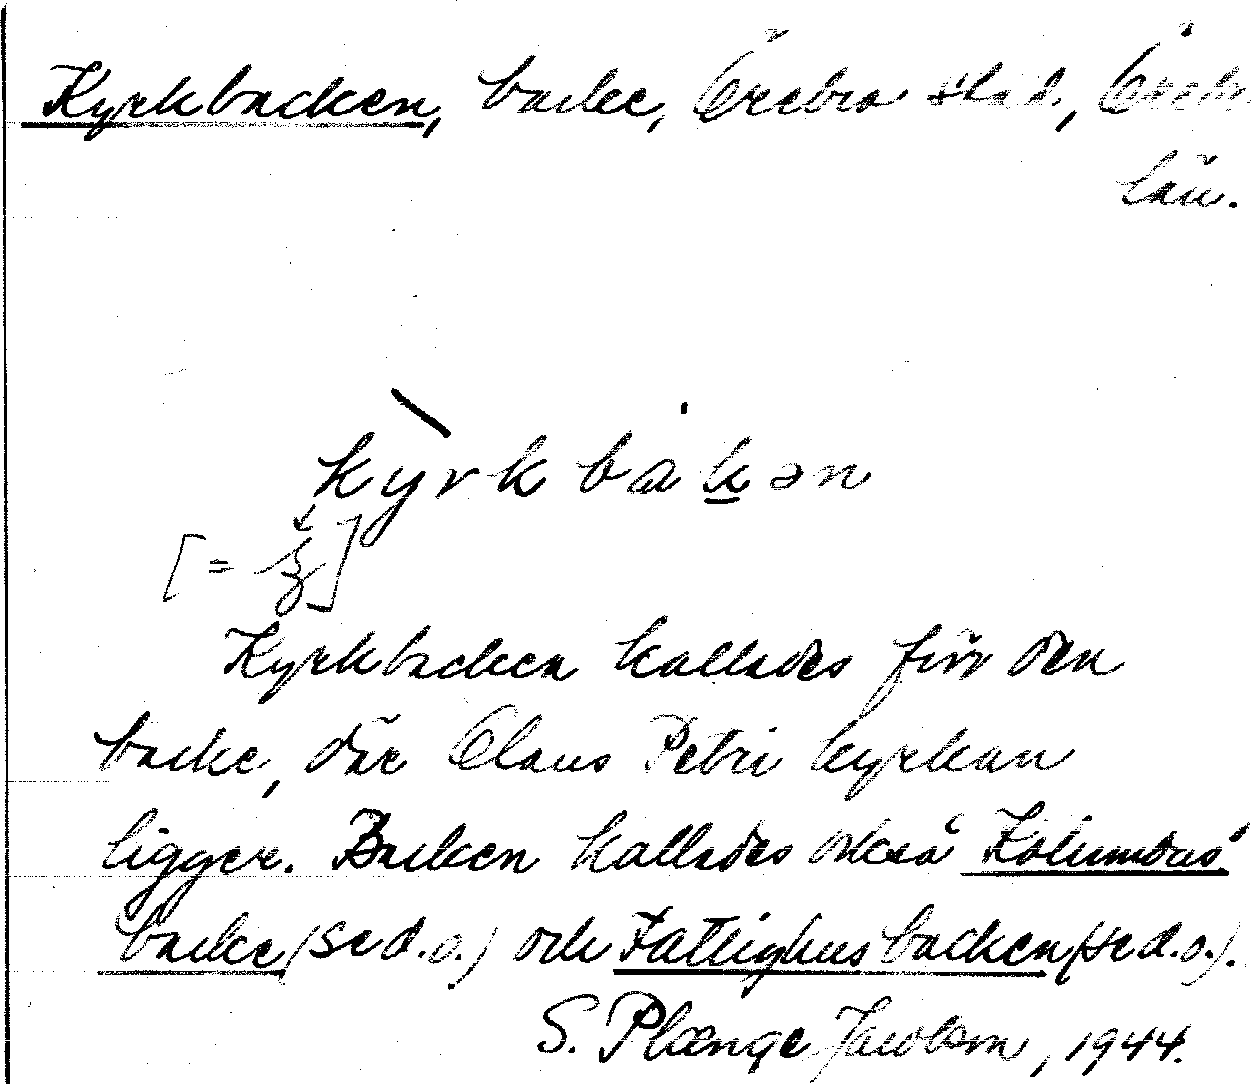 Kyrkbacken, backe, Örebro stad, Örebr
län.
kyrkbakən
[= ]
Kyrkbacken kallades förr den
backe, där Olaus Petri kyrkan
ligger. Backen kallades också Kolumbus
backe (se d.o.) och Fattighusbacken (se d.o.).
S. Plænge Jacobson, 1944.